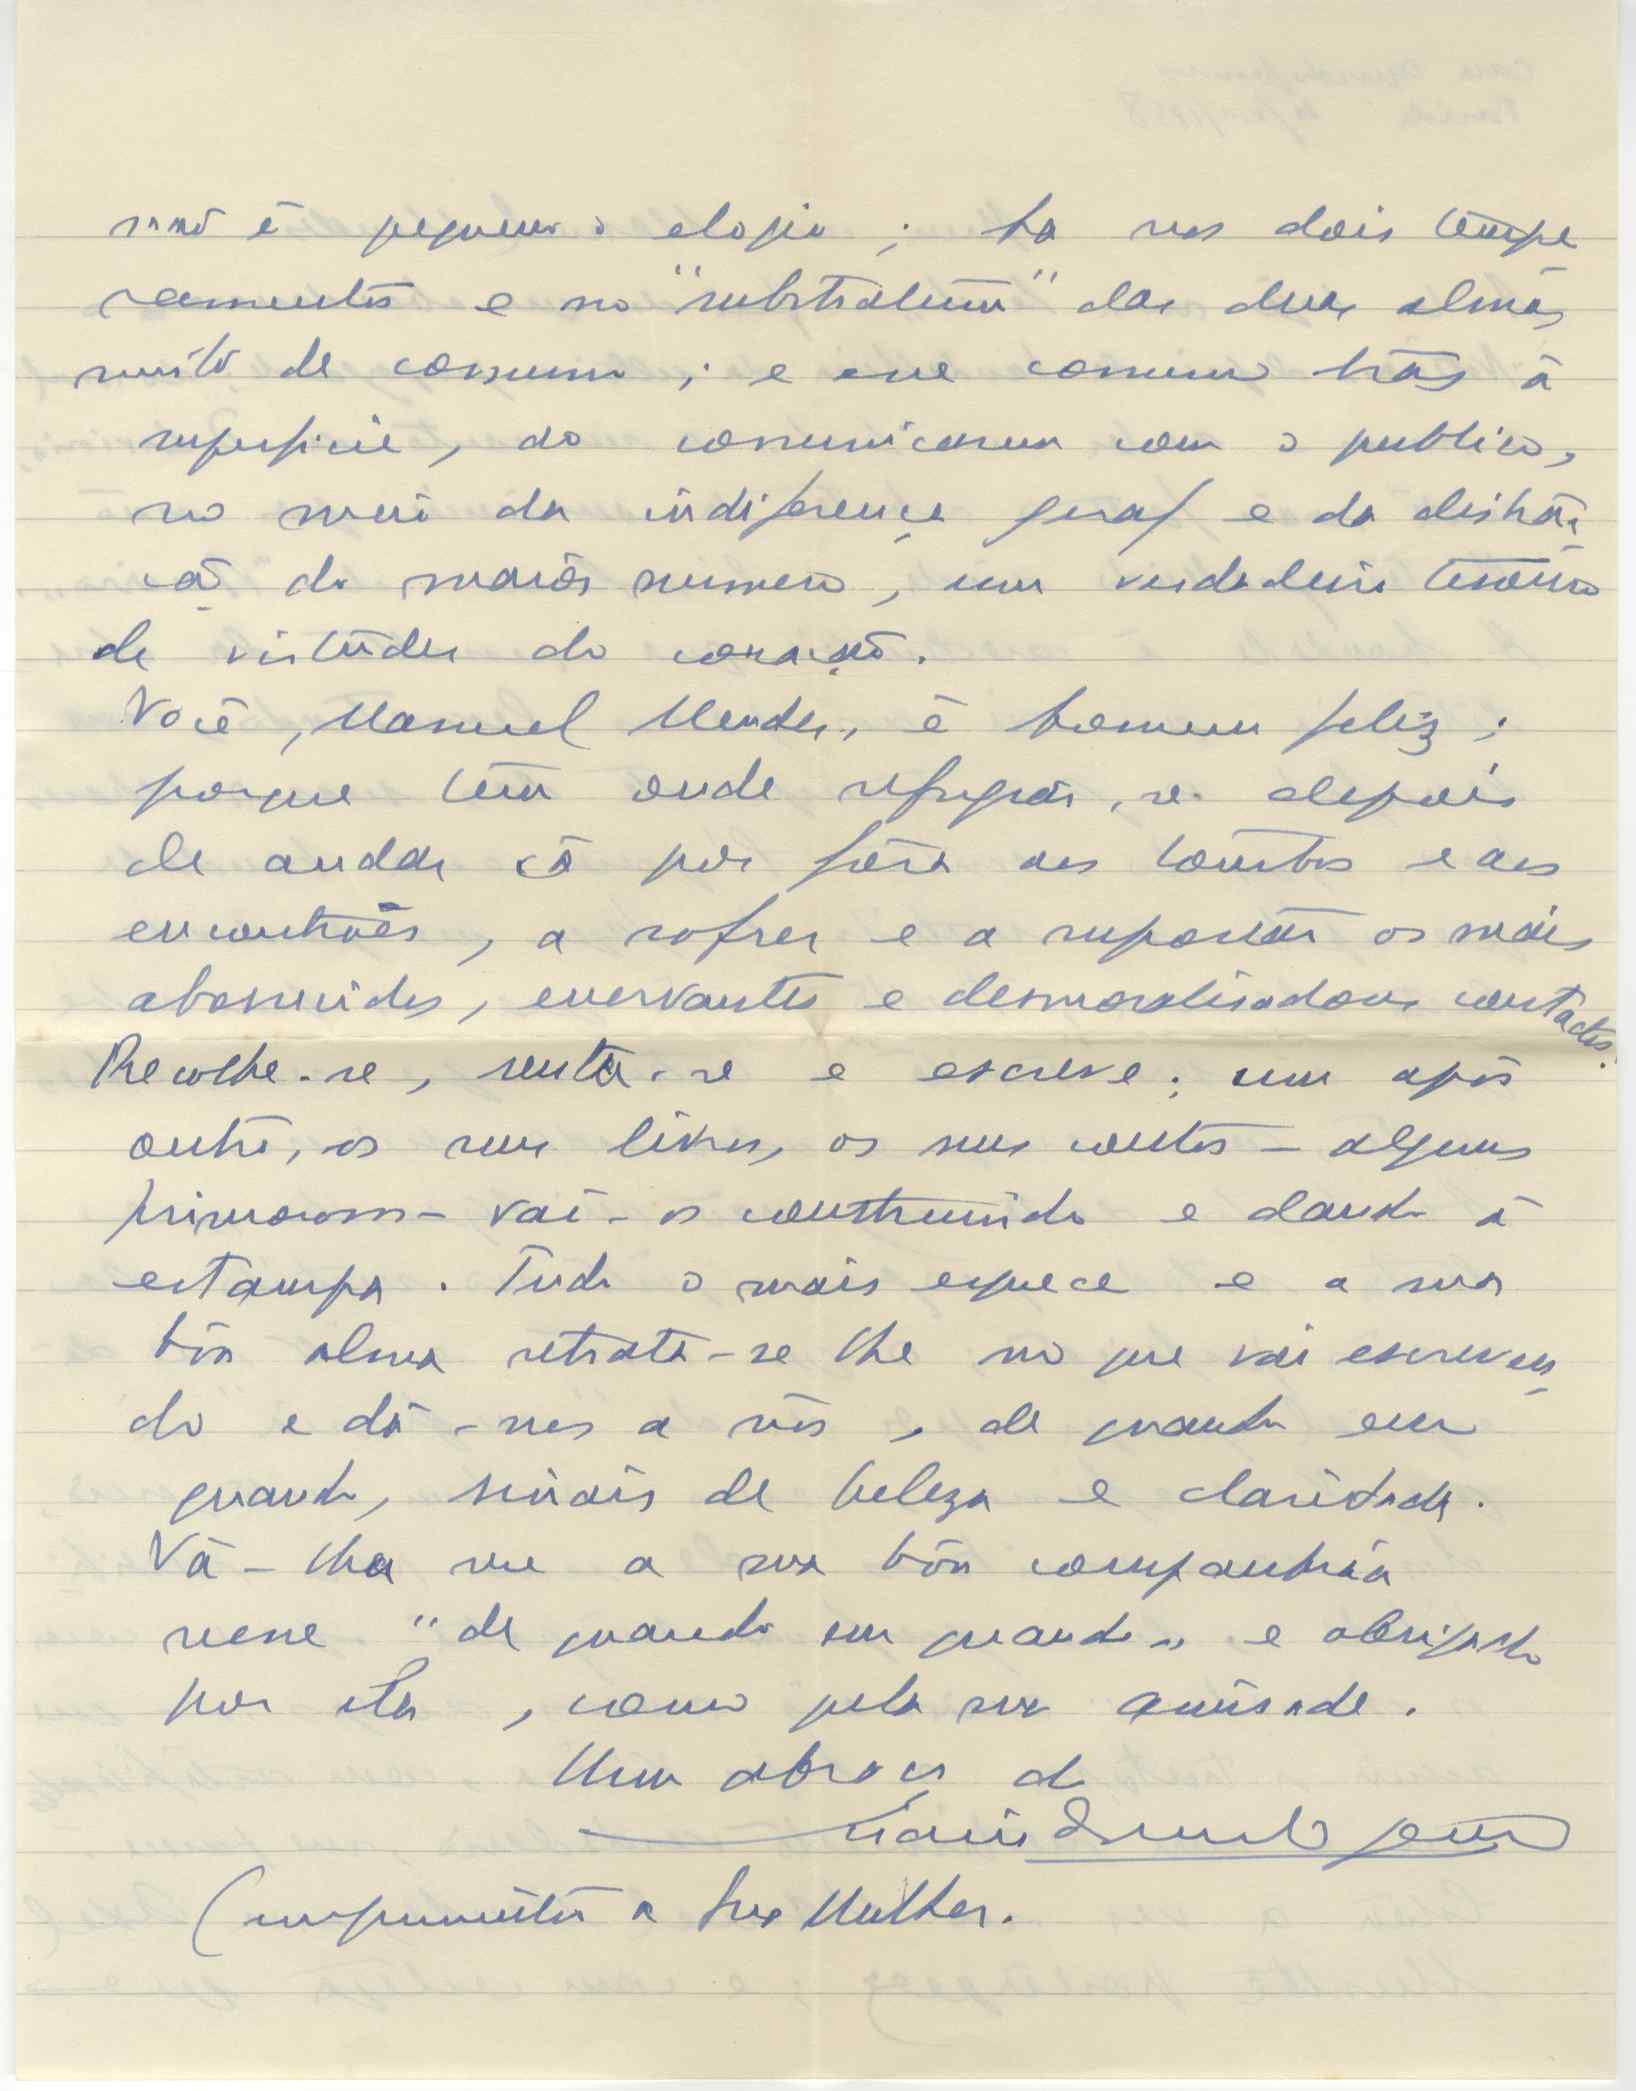 não é pequeno o elogio ; ha nos dois tempe
ramentos e no "substratum" das duas almas
muito de comum ; e esse comum trás á
superficie, ao comunicarem com o publico,
no meio da indiferença geral e da distra
ção do maiór numero, um verdadeiro tesouro
de virtudes do coração.
Você, Manuel Mendes, é homem feliz ;
porque tem onde refugiar-se depois
de andar cá por fóra aos tombos e aos
encontrões, a sofrer e a suportar os mais
aborrecidos, enervantes e desmoralisadores contactos.
Recolhe-se, senta-se e escreve ; um após
outro, os seus livros, os seus contos – alguns
primorosos – vai-os construindo e dando á
estampa. Tudo o mais esquece e a sua
bôa alma retrata-se-lhe no que vai escreven
do e dá-nos a nós, de quando em
quando, sinais de beleza e claridade.
Vá-lha me a sua bôa companhia
nesse "de quando em quando" e obrigado
por ela, como pela sua amisade.
Um abraço do
Cumprimentos a Sua Mulher.